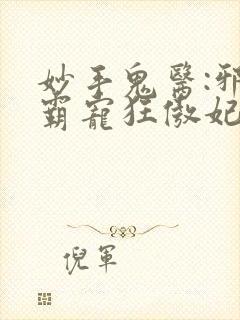 妙手鬼醫:邪
霸寵狂傲妃
倪軍